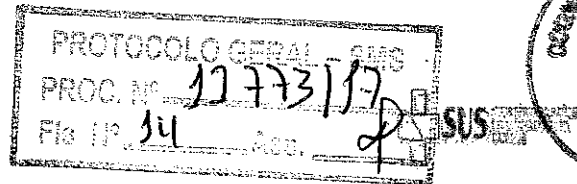 PROTOCOLO GERAL - SMS
PROC. Nº 12773/17
Fls. Nº 14 Ass.
SUS